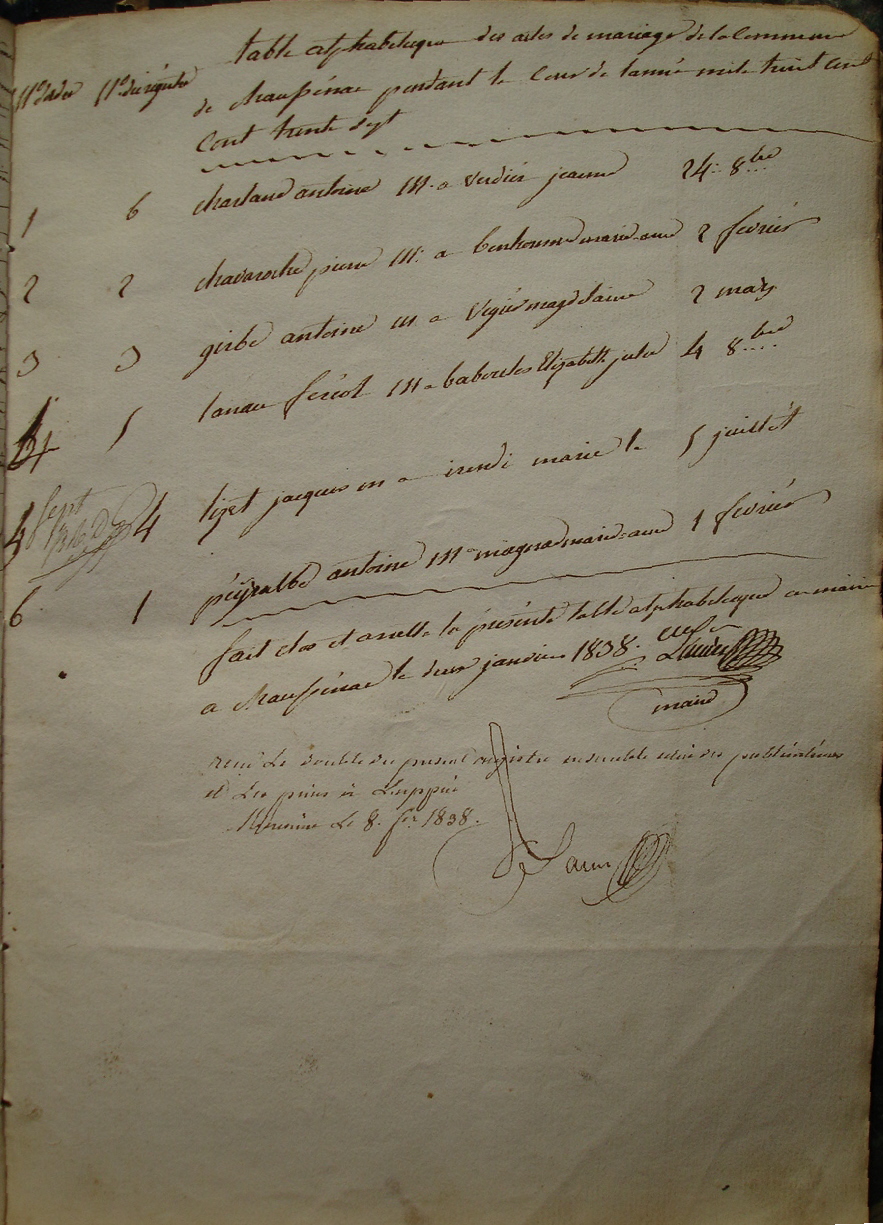 N° d'ordre N° du registre
table alphabetique des actes de mariage de la Commune
de Chaussenac pendant le Cour de lannée mile huit cent
Cent trente sept
1 6 Chastand antoine m. a Verdier jeanne 24 8bre
2 2 Chavaroche pierre m. a bonhoume marie anne 2 fevriér
3 3 girbe antoine m a Vigiér magdelaine 2 may
4 5 lanau feréol m a Elizabeth julie 4 8bre
4 lizet jacques m a marie le 5 juillét
6 1 peyralbe antoine m a marie anne 1 fevriér
fait clos et arretté la présente table alphabetique en mairie
a Chaussenac le deux janvier 1838.
maire
remi le double du present registre ensemble celui des publications
et les pieces à l'appui
Mauriac le 8. fer 1838.